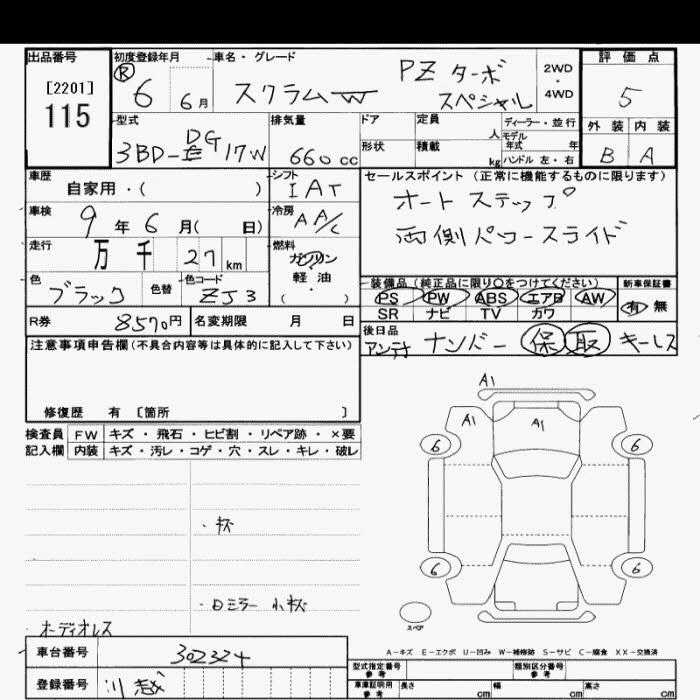 出品番号
[2201]
115
初度登録年月
R 6 6月
車名・グレード
スクラムW
PZ ターボ
スペシャル
2WD
・
4WD
評価点
5
外装 内装
B A
型式
3BD-DG17W
排気量
660cc
ドア
形状
定員
人
積載
kg
ディーラー・並行
モデル
年式 年
ハンドル 左・右
車歴
自家用・( )
シフト
IAT
セールスポイント (正常に機能するものに限ります)
オートステップ
両側パワースライド
車検
9年6月( 日)
冷房
AA/C
走行
万 千 27 km
燃料
ガソリン
軽・油
( ・ )
色
ブラック
色替
色コード
ZJ3
装備品 (純正品に限り○をつけてください)
PS PW ABS エアB AW
SR ナビ TV カワ
新車保証書
有 無
R券 8570円 名変期限 月 日
後日品
アンテナ ナンバー 保 取 キーレス
注意事項申告欄 (不具合内容等は具体的に記入して下さい)
修復歴 有 〔箇所 〕
検査員 FW キズ・飛石・ヒビ割・リペア跡・×要
記入欄 内装 キズ・汚レ・コゲ・穴・スレ・キレ・破レ
A1
A1
A1
6
6
・杯
6
6
・ロミラー 小杯
スペア
オーディオレス
A－キズ E－エクボ U－凹み W－補修跡 S－サビ C－腐食 XX－交換済
車台番号 302324
登録番号 川越
型式指定番号
参考
類別区分番号
参考
車庫証明用
参考
長さ cm 幅 cm 高さ cm